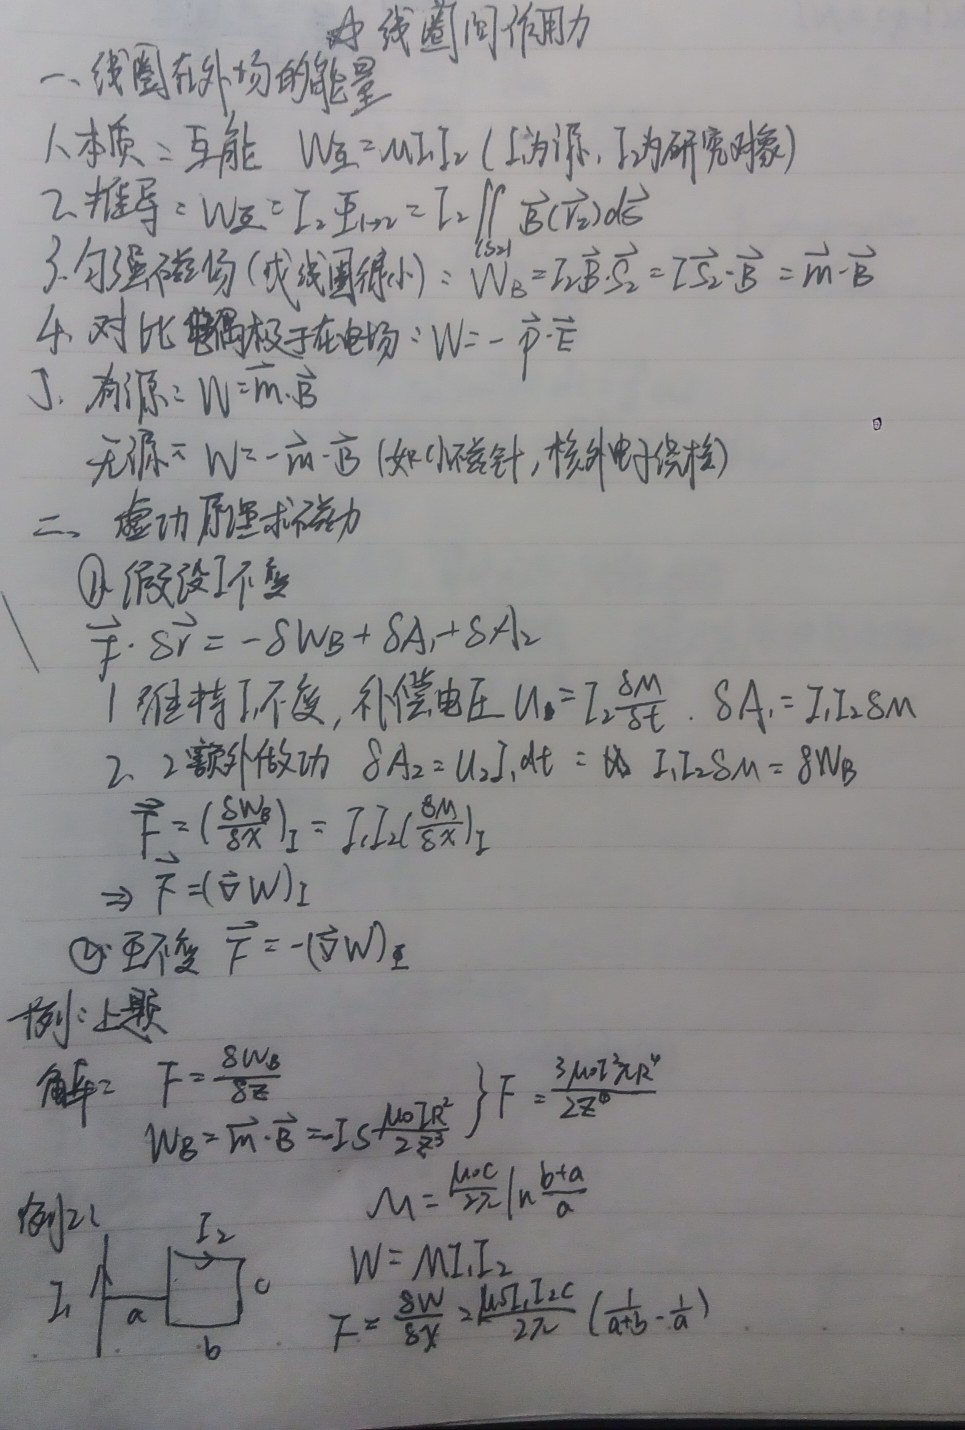 线圈间作用力
一、线圈在外场的能量
1、本质：互能 W互=MI₁I₂ (I₁为源，I₂为研究对象)
2、推导：W互=I₂Φ₁→₂=I₂∬(S₂) B⃗(r⃗₂)dS⃗
3、匀强磁场(或线圈很小)：W_B=I₂B⃗·S⃗₂=IS⃗₂·B⃗=m⃗·B⃗
4、对比电偶极子在电场：W=-p⃗·E⃗
5、有源：W=m⃗·B⃗
无源：W=-m⃗·B⃗ (如小磁针，核外电子绕核)
二、虚功原理求磁力
①、假设I不变
F⃗·δr⃗=-δW_B+δA₁+δA₂
1 维持I₁不变，补偿电压 U₁=I₂δM/δt. δA₁=I₁I₂δM
2、2额外做功 δA₂=U₂I₁dt= I₁I₂δM=δW_B
F⃗=(δW_B/δx)_I=I₁I₂(δM/δx)_I
⇒ F⃗=(∇⃗W)_I
②、Φ不变 F⃗=-(∇⃗W)_Φ
例：上题
解： F=δW_B/δz
W_B=m⃗·B⃗=-IS μ₀IR²/2z³ } F=3μ₀I²πR⁴/2z⁴
例2： M=μ₀c/2π ln (b+a)/a
I₂
W=MI₁I₂
I₁ a b c
F=δW/δx=μ₀I₁I₂c/2π (1/(a+b)-1/a)